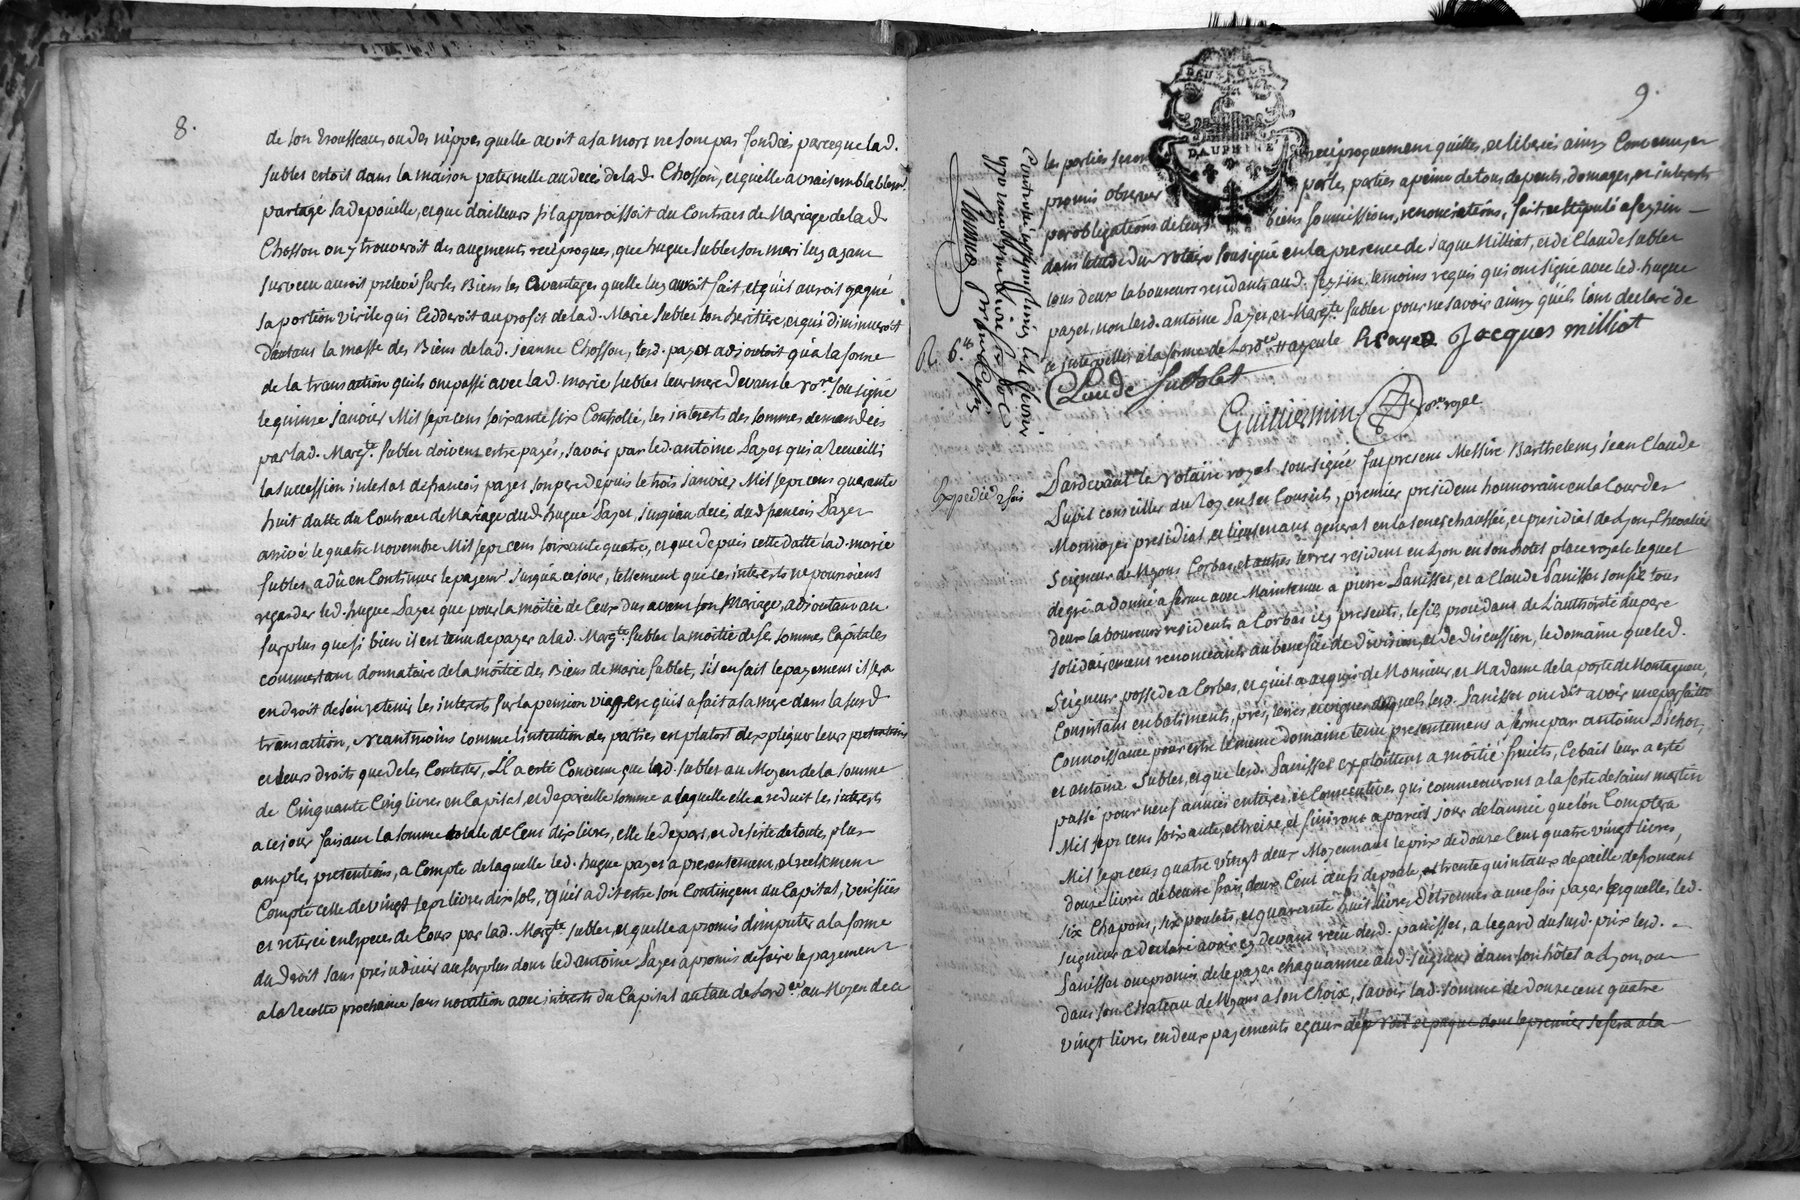 8.
de son trousseau, ou des nippes quelle avoit a sa mort ne sont pas fondées parce que lad.
sublet estoit dans la maison paternelle au deces de lad. Chosson, et quelle a vraisemblablemt.
partagé sa depoüelle, et que d'ailleurs s'il apparoissoit du Contract de Mariage de lad.
Chosson on y trouveroit des augments reciproques, que hugue Sublet son mari luy ayant
survecu auroit prelevé sur les Biens les avantages quelle luy avoit fait, et qu'il auroit gagné
sa portion virile qui cedderoit au profit de lad. Marie Sublet son heritiere, et qui diminueroit
d'autant la masse des Biens de lad. jeanne Chosson, lesd. payet adjoutoit qu'a la forme
de la transaction qu'ils ont passé avec lad. marie sublet leur mere devant le nore. soussigné
le quinze janvier Mil sept cens soixante six Controllé, les interests des sommes demandées
par lad. Margte. Sublet doivent estre payés, savoir par led. antoine Payet qui a recueilli
la succession intestat de francois payet son pere depuis le trois janvier Mil sept cens quarante
huit datte du Contract de Mariage dud. hugue Payet, jusqu'au deces dud. francois Payet
arrivé le quatre novembre Mil sept cens soixante quatre, et que depuis cette datte lad. marie
Sublet a dû en Continuer le payemt. jusqu'a ce jour, tellement que les interests ne pourroient
regarder led. hugue Payet que pour la môitié de Ceux dus avant son Mariage, adjoutant au
surplus que si bien il est tenu de payer a lad. Margte. Sublet la môitié de ses sommes Capitales
comme etant donnataire de la môitié des Biens de marie Sublet, s'il en fait le payement il sera
en droit de s'en retenir les interests sur la pension viagere qu'il a fait a sa mere dans la susd.
transaction, neantmoins comme l'intention des parties est plutost d'expliquer leurs pretentions
et leurs droits que de les Contester, Il a esté Convenu que lad. sublet au Moyen de la somme
de Cinquante Cinq livres en Capital, et de pareille somme a laquelle elle a reduit les interests
a ce jour faisant la somme totale de Cent dix livres, elle se depart, et desiste de toutes plus
amples pretentions, a Compte de laquelle led. hugue payet a presentement, et reellement
Compté celle de vingt sept livres dix sols, qu'il a dit estre son Contingent du Capital, verifiées
et retirée en Especes de Cours par lad. Margte. sublet, et quelle a promis d'imputer a la forme
du Droit sans prejudicier au surplus dont led. antoine Payet a promis de faire le payement
a la recolte prochaine sans novation avec interests du Capital au tau de Lordce. au Moyen de ce
9.
DAUPHINE
les parties seront reciproquement quittes, et liberées ainsy Convenu, et
promis observer par les, parties a peine de tous depents, domages, et interests
par obligations de leurs biens soumissions, renonciations, fait, et stipulé a feyzin
dans l'etude du Notaire soussigné en la presence de jaque Milliat, et de Claude Sublet
tous deux laboureurs residants aud. feyzin, temoins requis qui ont signé avec led. hugue
payet, non lesd. antoine Payet, et Margte. Sublet pour ne savoir ainsy qu'ils l'ont declaré de
ce interpellés a la forme de Lordce. H Payet Jacques milliat
Claude Sublet
Guilliermin nore. royal
R. 6.
Expedié 2 fois
Pardevant le Notaire royal soussigné fut present Messire Barthelemy jean Claude
Pupil conseiller du Roy en ses Conseils, premier president honnoraire en la Cour des
Monnoyes presidial, et lieutenant general en la senechaussée, et presidial de Lyon, Chevalier
Seigneur de Myons Corbas, et autres terres resident en Lyon en son hotel place royale lequel
de gré a donné a ferme avec Maintenue a pierre Panisset, et a Claude Panisset son fils tous
deux laboureurs residents a Corbas icy presents, le fils procedant de L'authorité du pere
solidairement renonceants au benefice de division, et de discussion, le domaine que led.
Seigneur possede a Corbas, et qu'il a acquis de Monsieur, et Madame de la porte de Montagneu,
Consistant en batiments, prés, terres, et vignes desquels lesd. Panisset ont dit avoir une parfaite
Connoissance pour estre le meme domaine tenu presentement a ferme par antoine Pichot,
et antoine Sublet, et que lesd. Panisset exploittent a môitié fruits, Ce bail leur a esté
passé pour neuf années entieres, et Consecutives, qui commenceront a la feste de saint martin
Mil sept cens soixante, et treize, et finiront a pareil jour de l'année que l'on Comptera
Mil sept cens quatre vingt deux Moyennant le prix de douze Cent quatre vingt livres,
douze livres de beurre frais, deux Cent œufs de poule, et trente quintaux de paille de froment
six Chapons, six poulets, et quarante huit livres D'etrennes a une fois payer lesquelles led.
seigneur a declaré avoir cy devant reçu desd. panisset, a legard du susd. prix lesd.
Panisset ont promis de le payer chaqu'année aud. seigneur dans son hôtel a Lyon, ou
dans son Chateau de Myons a son Choix, savoir lad. somme de douze cent quatre
vingt livres en deux payements egaux